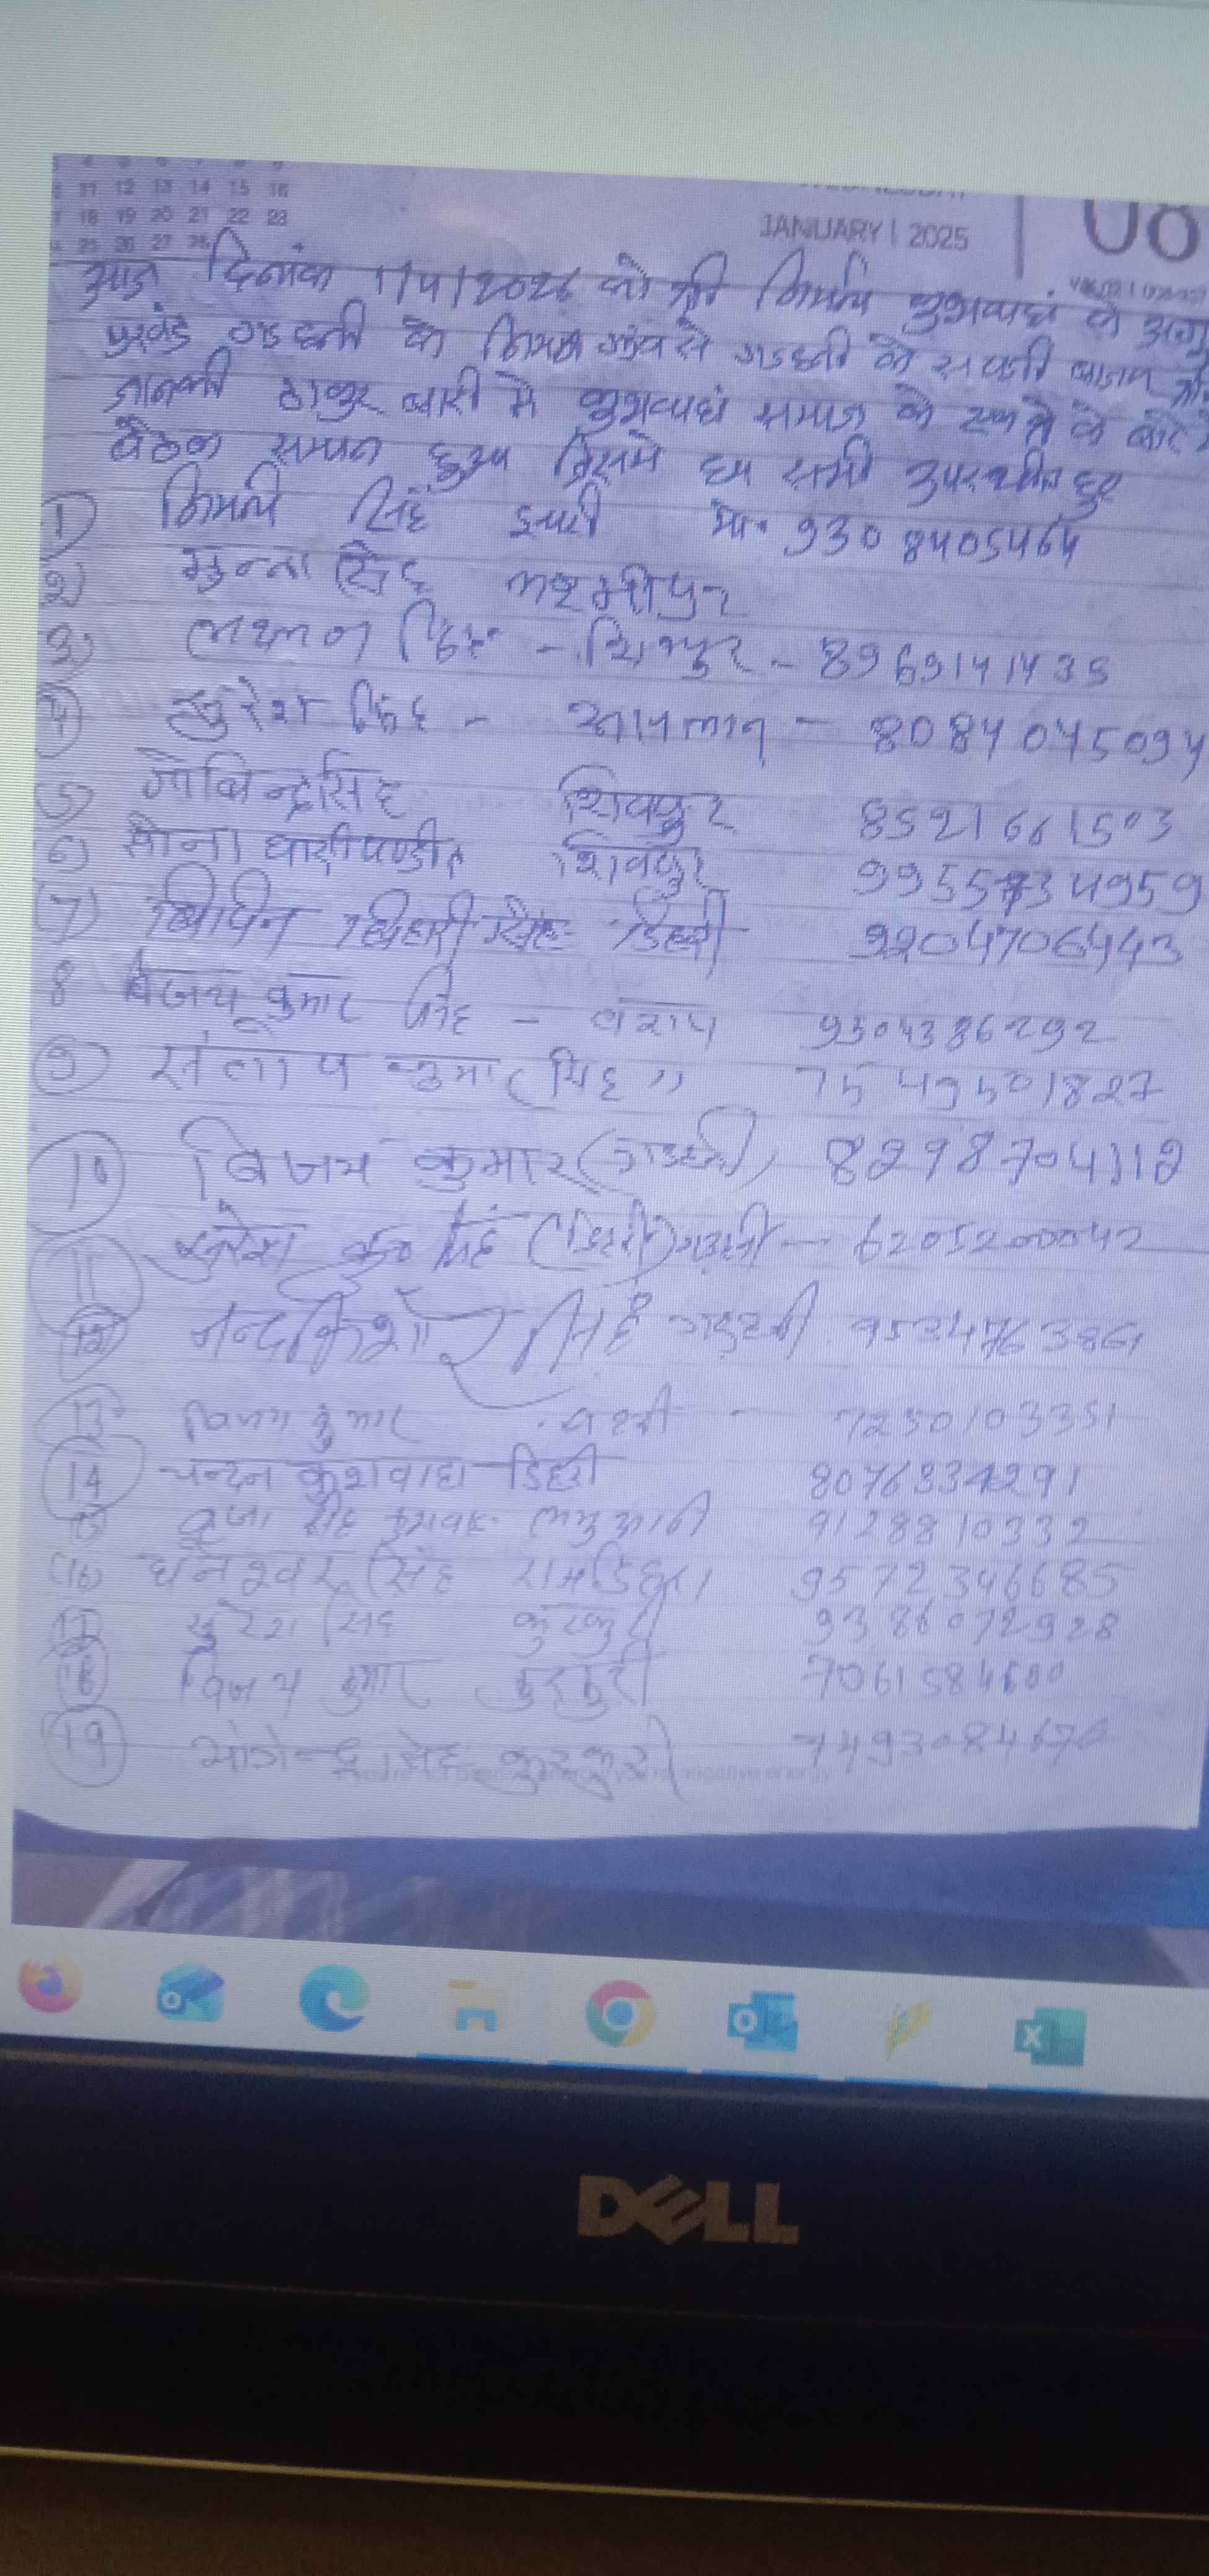 11 12 13 14 15 16
18 19 20 21 22 23
25 26 27 28
JANUARY | 2025 08
आज दिनांक 11/4/2026 को श्री निर्मल कुशवाहा के
प्रखंड गड़हनी के गड़हनी के
जानकी ठाकुर बारी मे कुशवाहा समाज के एकता के बारे
बैठक सम्पन हुआ जिसमे हम सभी उपस्थीत हुए
1) निर्मल सिंह इचरी मो. 9308405464
2) मुन्ना सिंह लक्ष्मीपुर
3) सिंह - शिवपुर - 8969141435
4) सुरेश सिंह - - 8084045094
5) गोबिन्द्र सिंह शिवपुर 8521661503
6) शिवपुर 9955734959
7) बिपिन बिहारी सिंह डिहरी 9204706443
8 बिजय कुमार सिंह - बराप 9304386292
9) संतोष कुमार सिंह " 7549501827
10 बिजय कुमार (गड़हनी) 8298704112
11 सुरेश कु० सिंह गड़हनी - 6205200042
12 नन्दकिशोर सिंह गड़हनी 9534763861
13 कुमार - 7250103351
14 चन्दन कुशवाहा डिहरी 8076334291
15 सिंह 9128810332
16) धनेश्वर सिंह रामडिहरा 9572346685
17 सुरेश सिंह कुरकुरी 9386072928
18 विजय कुमार कुरकुरी 7061584600
19 सिंह कुरकुरी 7493084670
negative energy
DELL